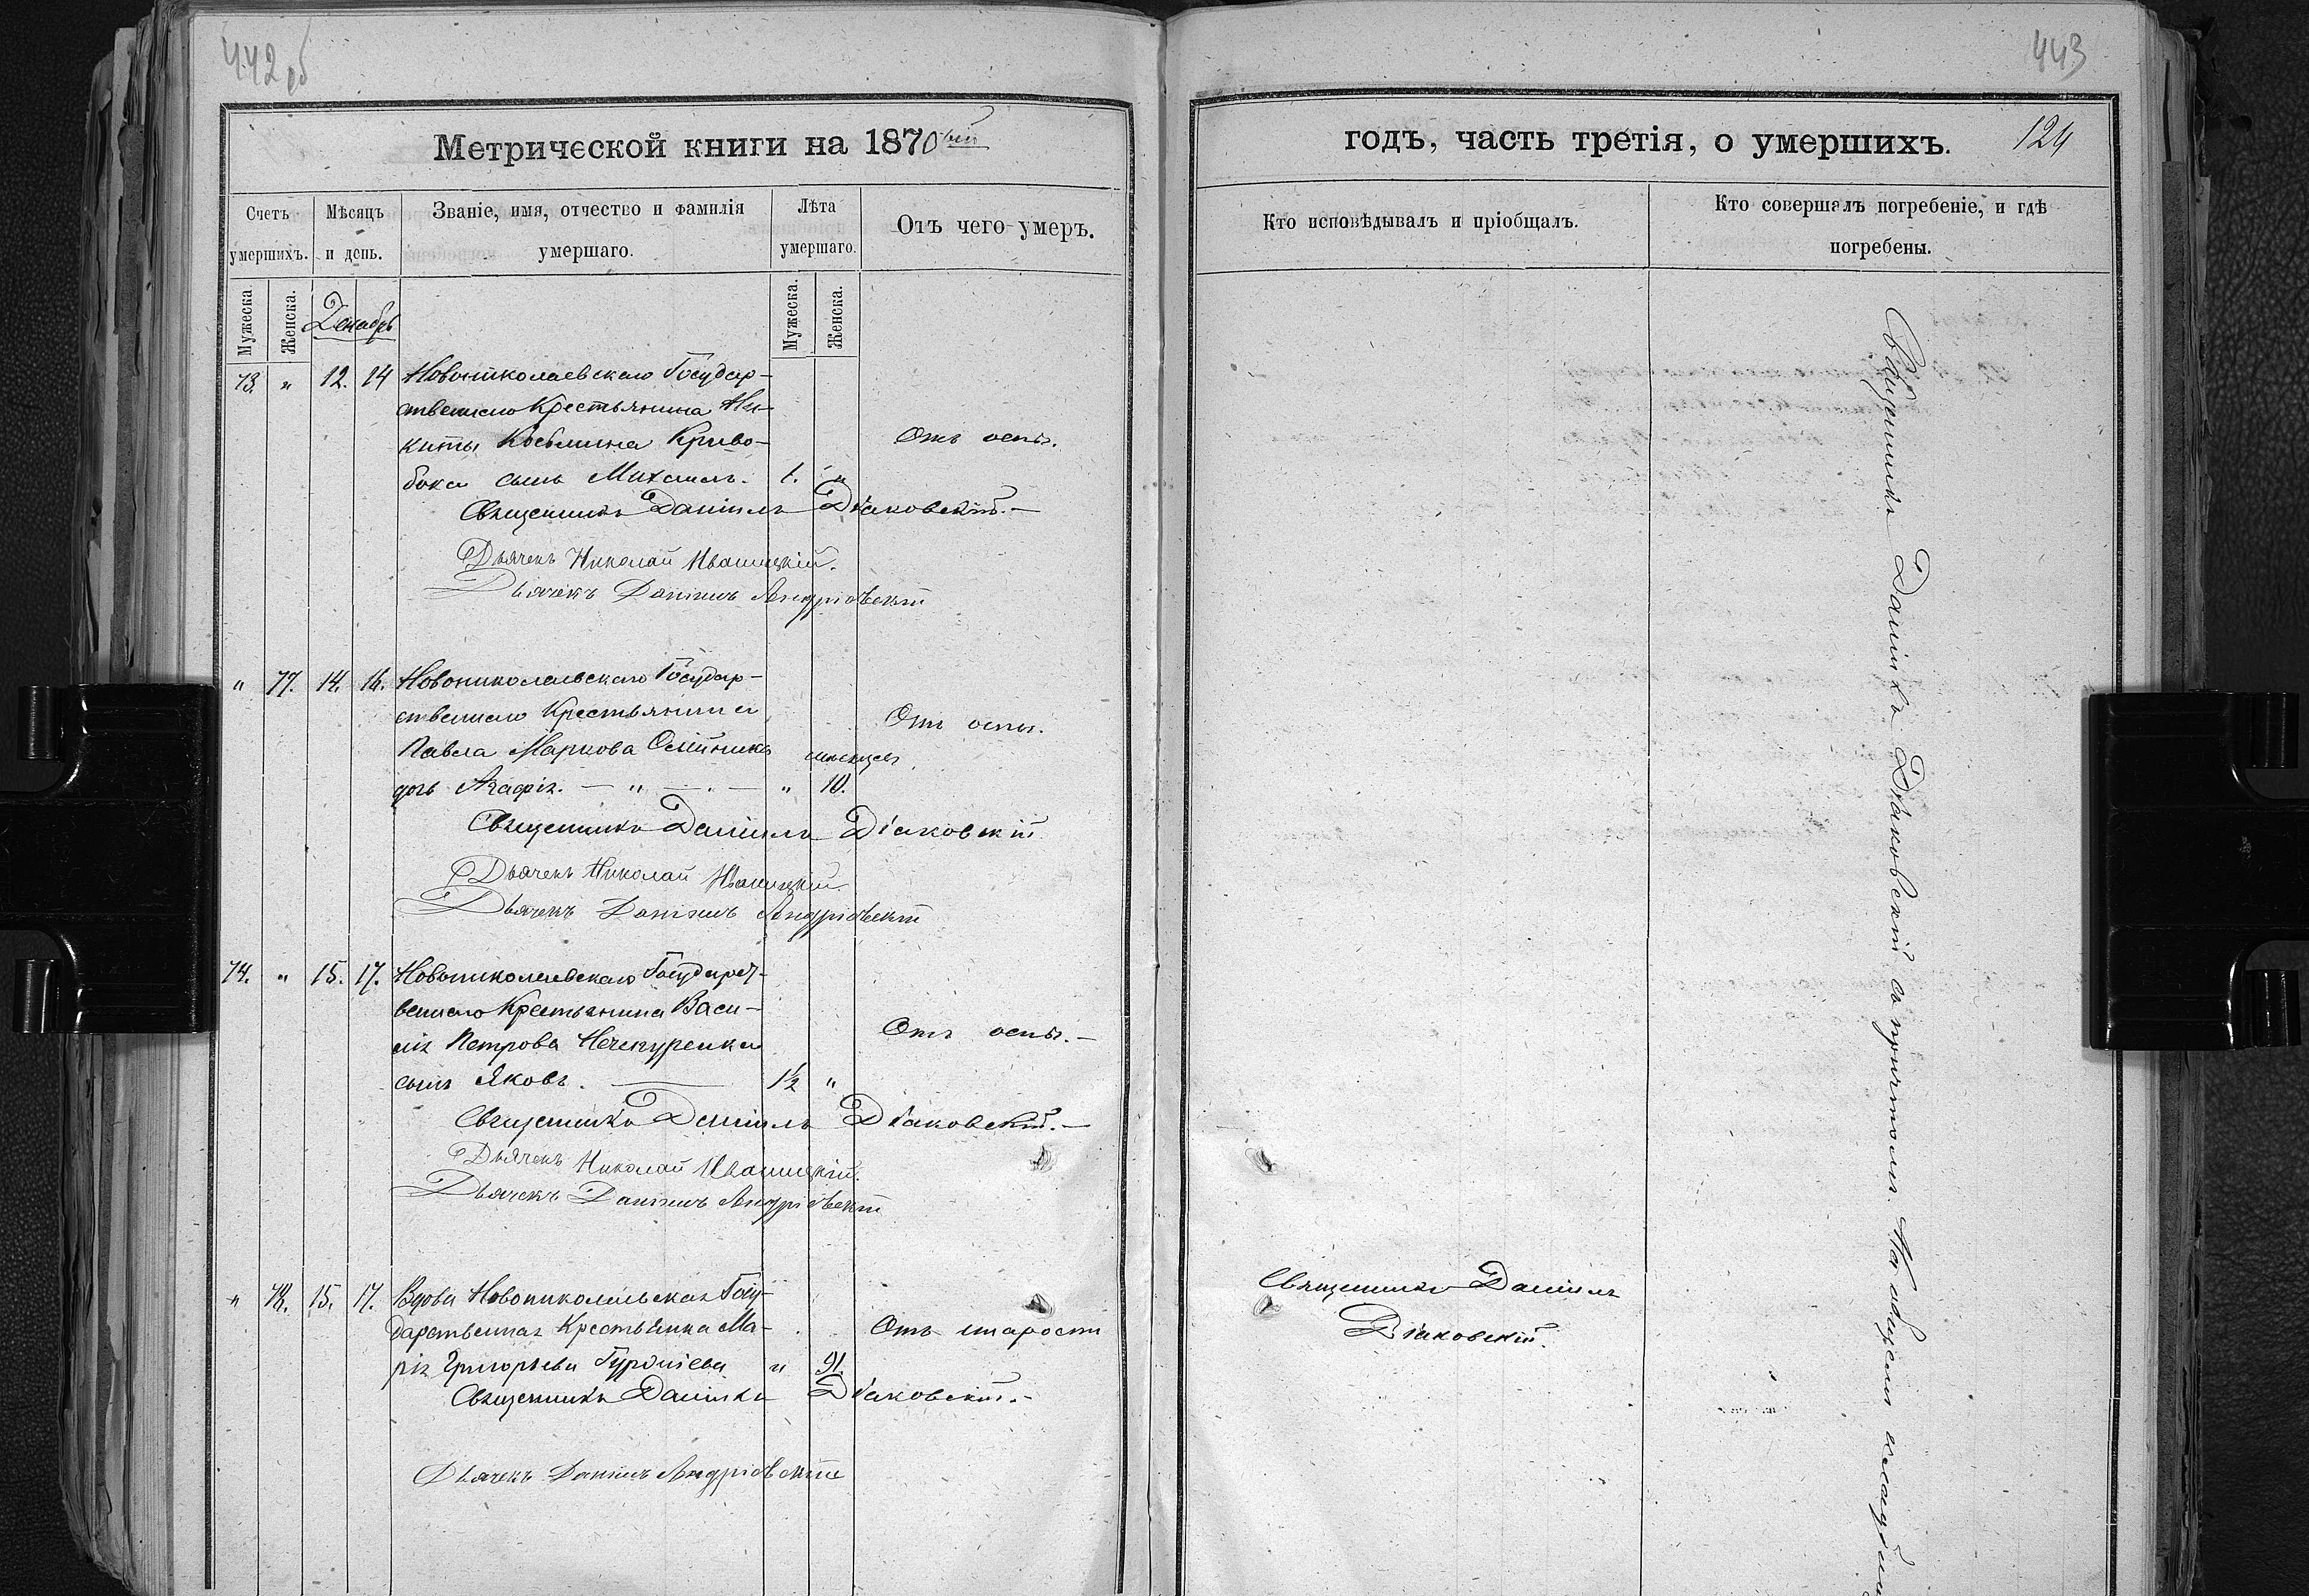 442 об
443
Метрической книги на 1870ый
годъ, часть третія, о умершихъ.
124
Счетъ умершихъ.
Мѣсяцъ и день.
Званіе, имя, отчество и фамилія умершаго.
Лѣта умершаго.
Отъ чего умеръ.
Кто исповѣдывалъ и пріобщалъ.
Кто совершалъ погребеніе, и гдѣ погребены.
Мужеска
Женска.
Декабрь
Мужеска.
Женска.
73. " 12. 14 Новониколаевскаго Государ-
ственнаго Крестьянина Ни-
киты Косьмина Криво-
бока сынъ Михаилъ. 1. "
Отъ оспы.
Священникъ Даніилъ Діаковскій.—
Дьячекъ Николай Ивашицкій.
Дьячекъ Даніилъ Андріевскій
" 77. 14. 16. Новониколаевскаго Государ-
ственнаго Крестьянина
Павла Маркова Олійника
дочь Агафія. — " — . — " 10.
мѣсяцевъ
Отъ оспы.
Священникъ Даніилъ Діаковскій.
Дьячекъ Николай Ивашицкій.
Дьячекъ Даніилъ Андріевскій
74. " 15. 17. Новониколаевскаго Государст-
веннаго Крестьянина Васи-
лія Петрова Нечкуренка
сынъ Яковъ. — 1½ "
Отъ оспы.—
Священникъ Даніилъ Діаковскій.—
Дьячекъ Николай Ивашицкій.
Дьячекъ Даніилъ Андріевскій
" 78. 15. 17. Вдова Новониколаевская Госу-
дарственная Крестьянка Ма-
рія Григорьева Гурдніева " 91.
Отъ старости
Священникъ Даніилъ Діаковскій.—
Дьячекъ Даніилъ Андріевскій
Священникъ Даніилъ
Діаковскій.
Священникъ Даніилъ Діаковскій съ причтомъ. На общемъ кладбищ